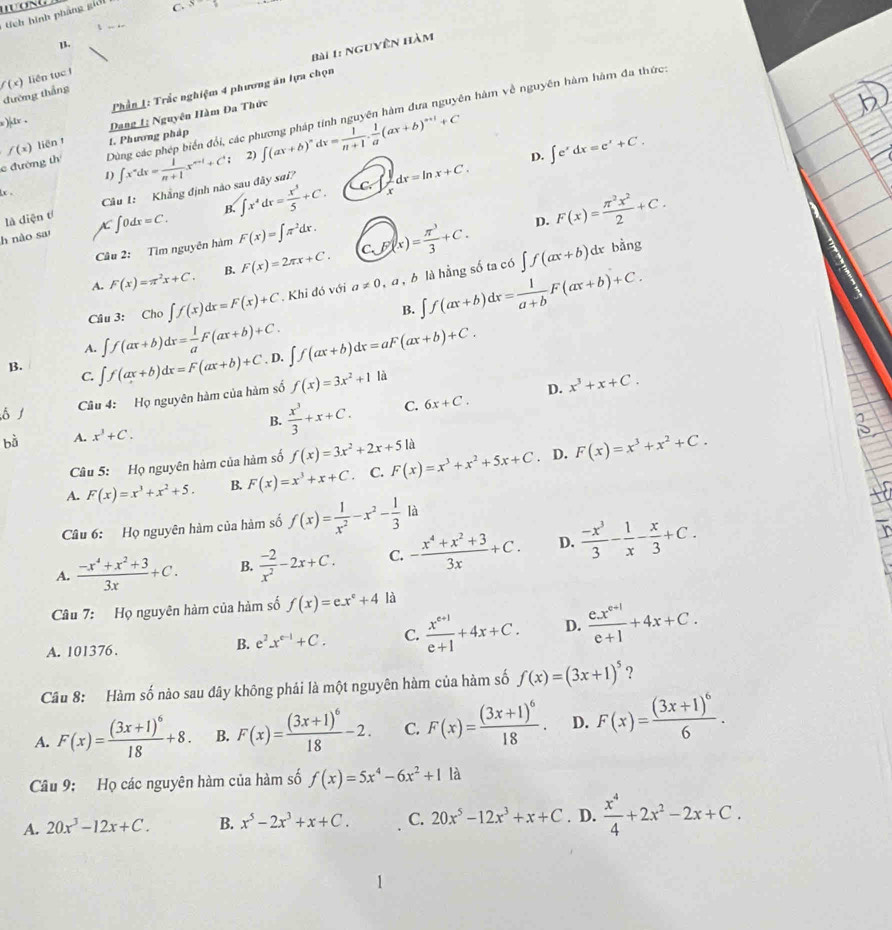 tích hình phẳng giới
C.
B.
f(x) liên tục t
đường thẳng
Bài 1: NGUYÊN HÀM
Phần 1: Trắc nghiệm 4 phương án lựa chọn
Dạng 1: Nguyên Hàm Đa Thức
1. Phương pháp
Dùng các phép biến đổi, các phương pháp tính nguyên hàm đưa nguyên hàm về nguyên hàm hàm đa thức:
1) ∫xⁿdx = 1/(n+1) xⁿ⁺¹ + C; 2) ∫(ax+b)ⁿ dx = 1/(n+1) · 1/a (ax+b)ⁿ⁺¹ + C
f(x) liên t
c đường th
là diện t
h nào sa
Câu 1: Khẳng định nào sau đây sai?
A. ∫0dx = C. B. ∫x⁴dx = x⁵/5 + C. C. ∫1/x dx = ln x + C. D. ∫eˣdx = eˣ + C.
Câu 2: Tìm nguyên hàm F(x) = ∫π²dx.
A. F(x) = π²x + C. B. F(x) = 2πx + C. C. F(x) = π³/3 + C. D. F(x) = π²x²/2 + C.
Câu 3: Cho ∫f(x)dx = F(x) + C. Khi đó với a ≠ 0, a, b là hằng số ta có ∫f(ax+b)dx bằng
A. ∫f(ax+b)dx = 1/a F(ax+b) + C. B. ∫f(ax+b)dx = 1/(a+b) F(ax+b) + C.
B.
C. ∫f(ax+b)dx = F(ax+b) + C. D. ∫f(ax+b)dx = aF(ax+b) + C.
Câu 4: Họ nguyên hàm của hàm số f(x) = 3x² + 1 là
A. x³ + C. B. x³/3 + x + C. C. 6x + C. D. x³ + x + C.
Câu 5: Họ nguyên hàm của hàm số f(x) = 3x² + 2x + 5 là
A. F(x) = x³ + x² + 5. B. F(x) = x³ + x + C. C. F(x) = x³ + x² + 5x + C. D. F(x) = x³ + x² + C.
Câu 6: Họ nguyên hàm của hàm số f(x) = 1/x² − x² − 1/3 là
A. (−x⁴ + x² + 3)/3x + C. B. −2/x² − 2x + C. C. −(x⁴ + x² + 3)/3x + C. D. −x³/3 − 1/x − x/3 + C.
Câu 7: Họ nguyên hàm của hàm số f(x) = e.xᵉ + 4 là
A. 101376. B. e².xᵉ⁻¹ + C. C. xᵉ⁺¹/(e+1) + 4x + C. D. e.xᵉ⁺¹/(e+1) + 4x + C.
Câu 8: Hàm số nào sau đây không phải là một nguyên hàm của hàm số f(x) = (3x+1)⁵?
A. F(x) = (3x+1)⁶/18 + 8. B. F(x) = (3x+1)⁶/18 − 2. C. F(x) = (3x+1)⁶/18. D. F(x) = (3x+1)⁶/6.
Câu 9: Họ các nguyên hàm của hàm số f(x) = 5x⁴ − 6x² + 1 là
A. 20x³ − 12x + C. B. x⁵ − 2x³ + x + C. C. 20x⁵ − 12x³ + x + C. D. x⁴/4 + 2x² − 2x + C.
1